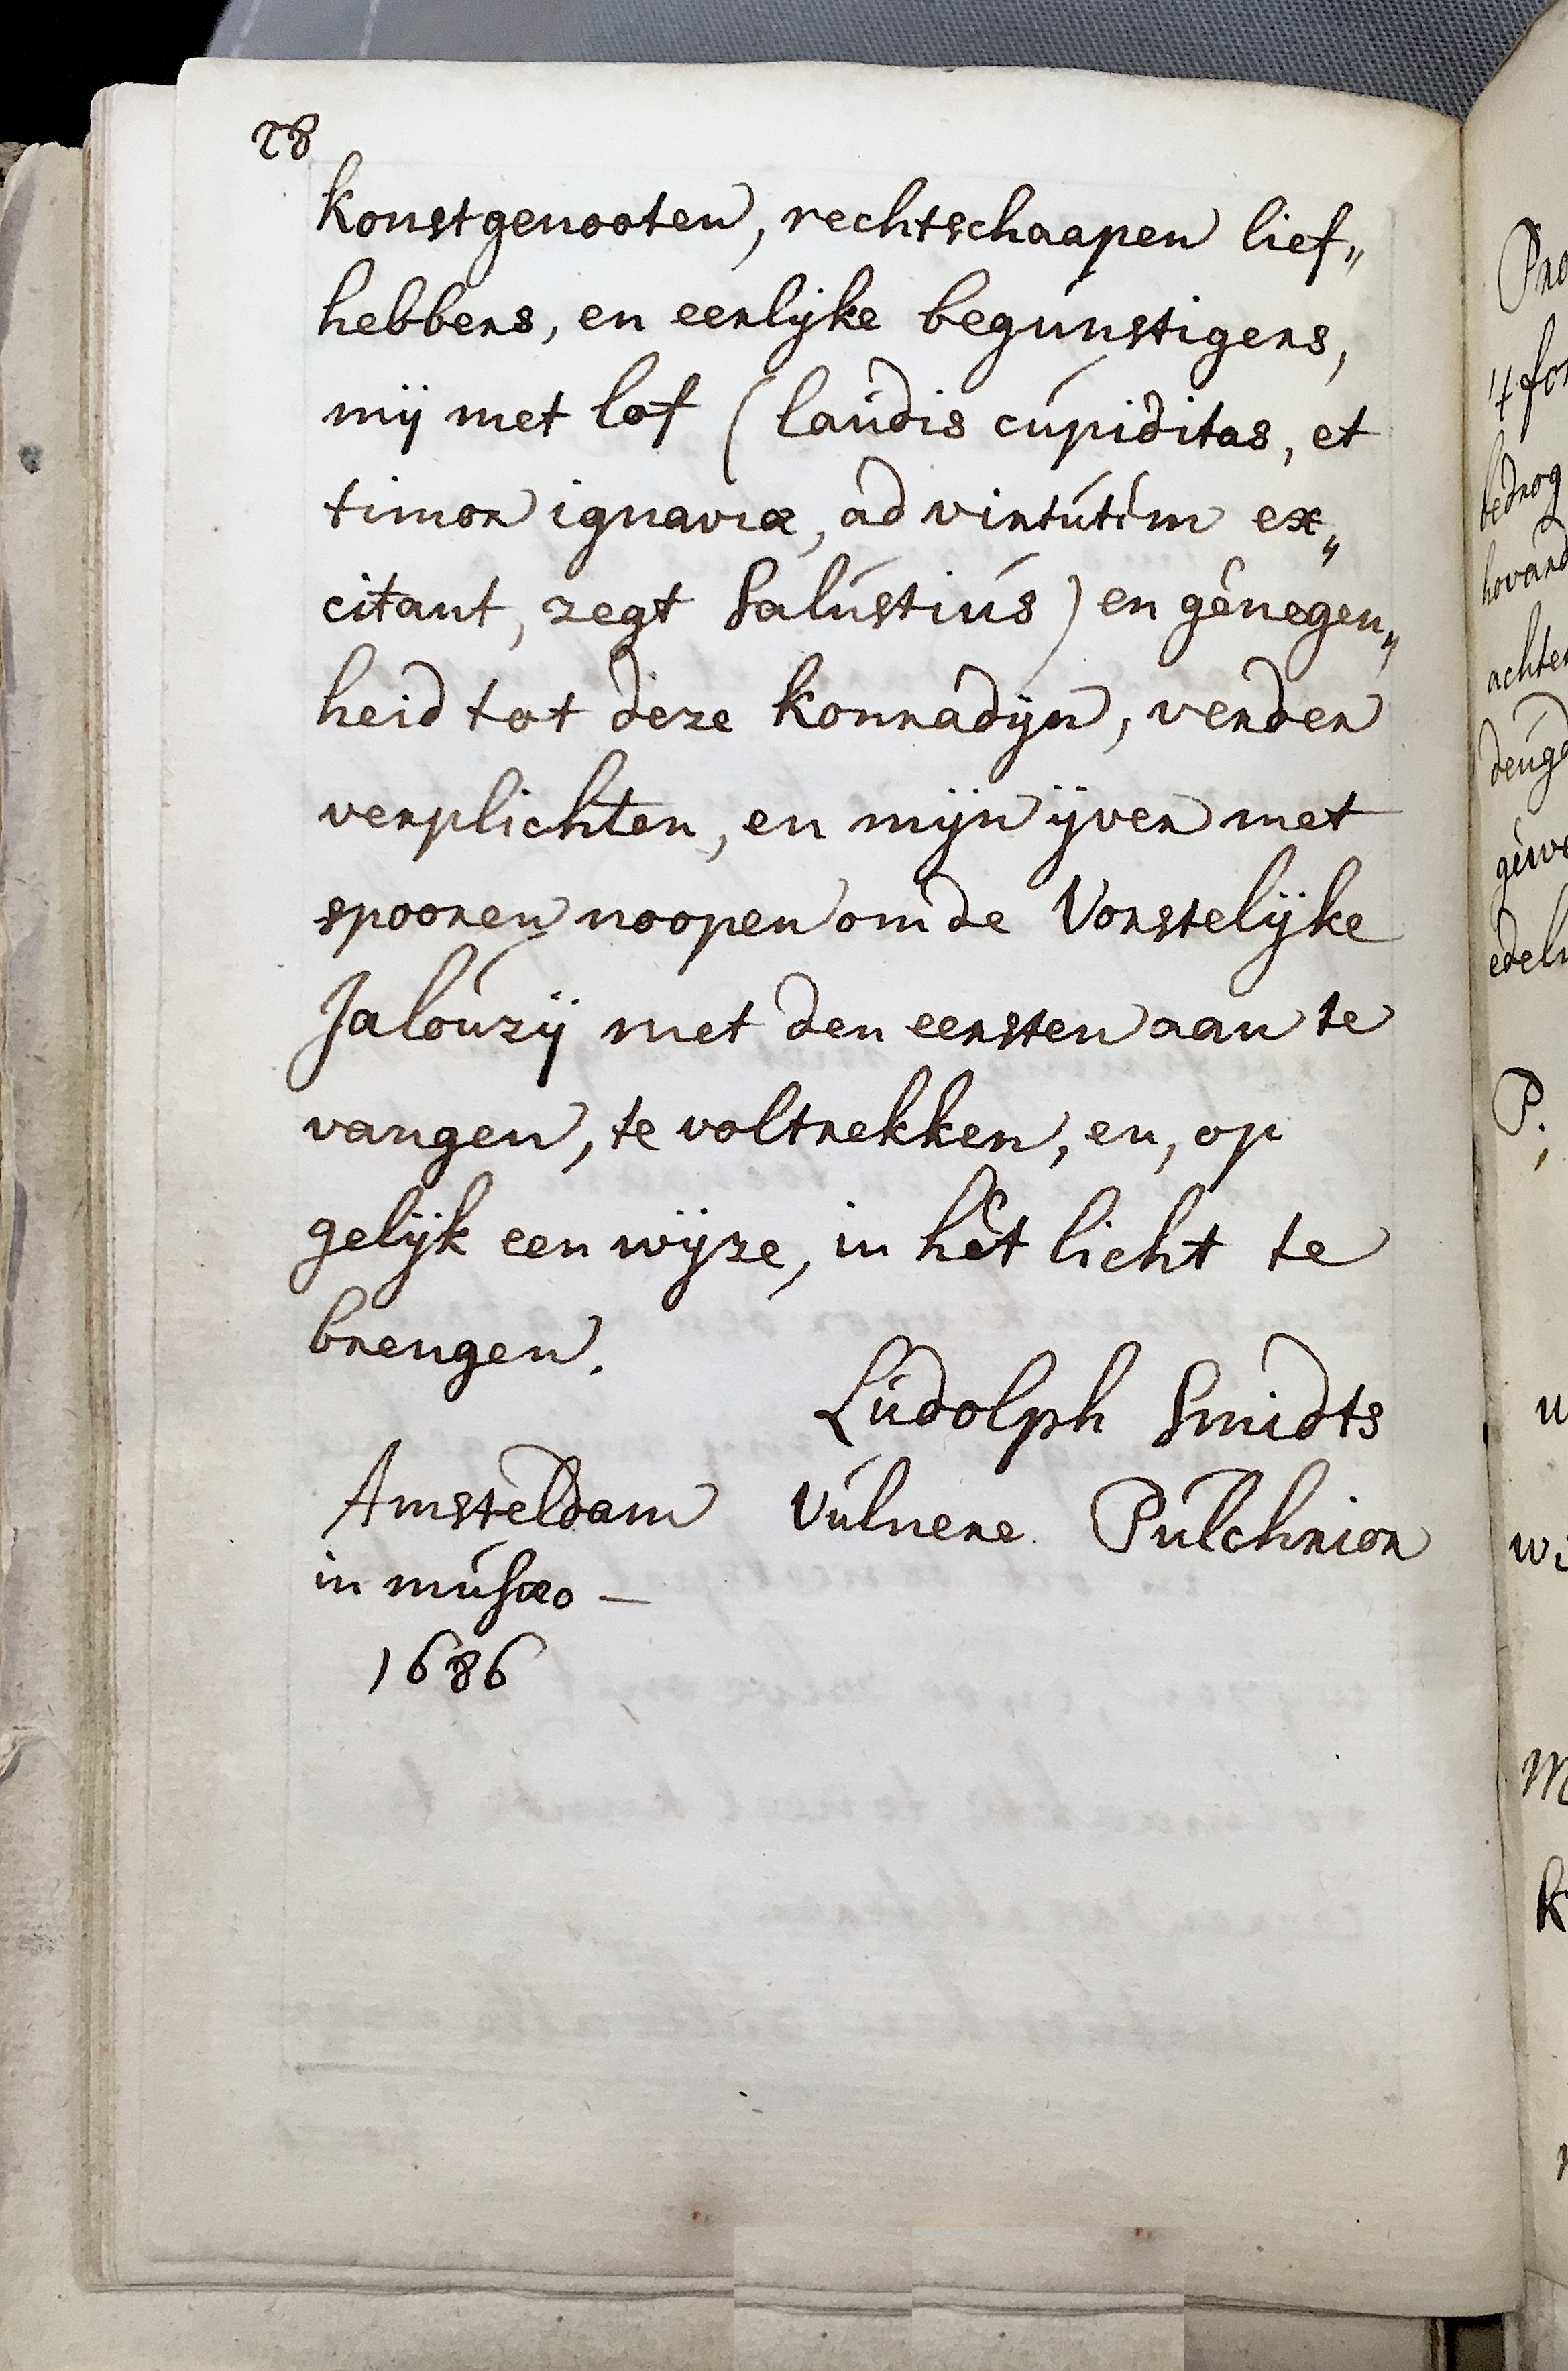 28
konstgenooten, rechtschaapen lief„
hebbers, en eerlijke begunstigers,
mij met lof (laudis cupiditas, et
timor ignaviæ, ad virtutem ex„
citant, zegt Salustius) en genegen„
heid tot deze Konradijn, verder
verplichten, en mijn ijver met
spooren noopen om de Vorstelijke
Jalouzij met den eersten aan te
vangen, te voltrekken, en, op
gelijk een wijze, in het licht te
brengen.
Ludolph Smidts
Amsteldam Vulnere Pulchrior
in musæo —
1686
Pro
bedrog
achter
deugd
edel
P.